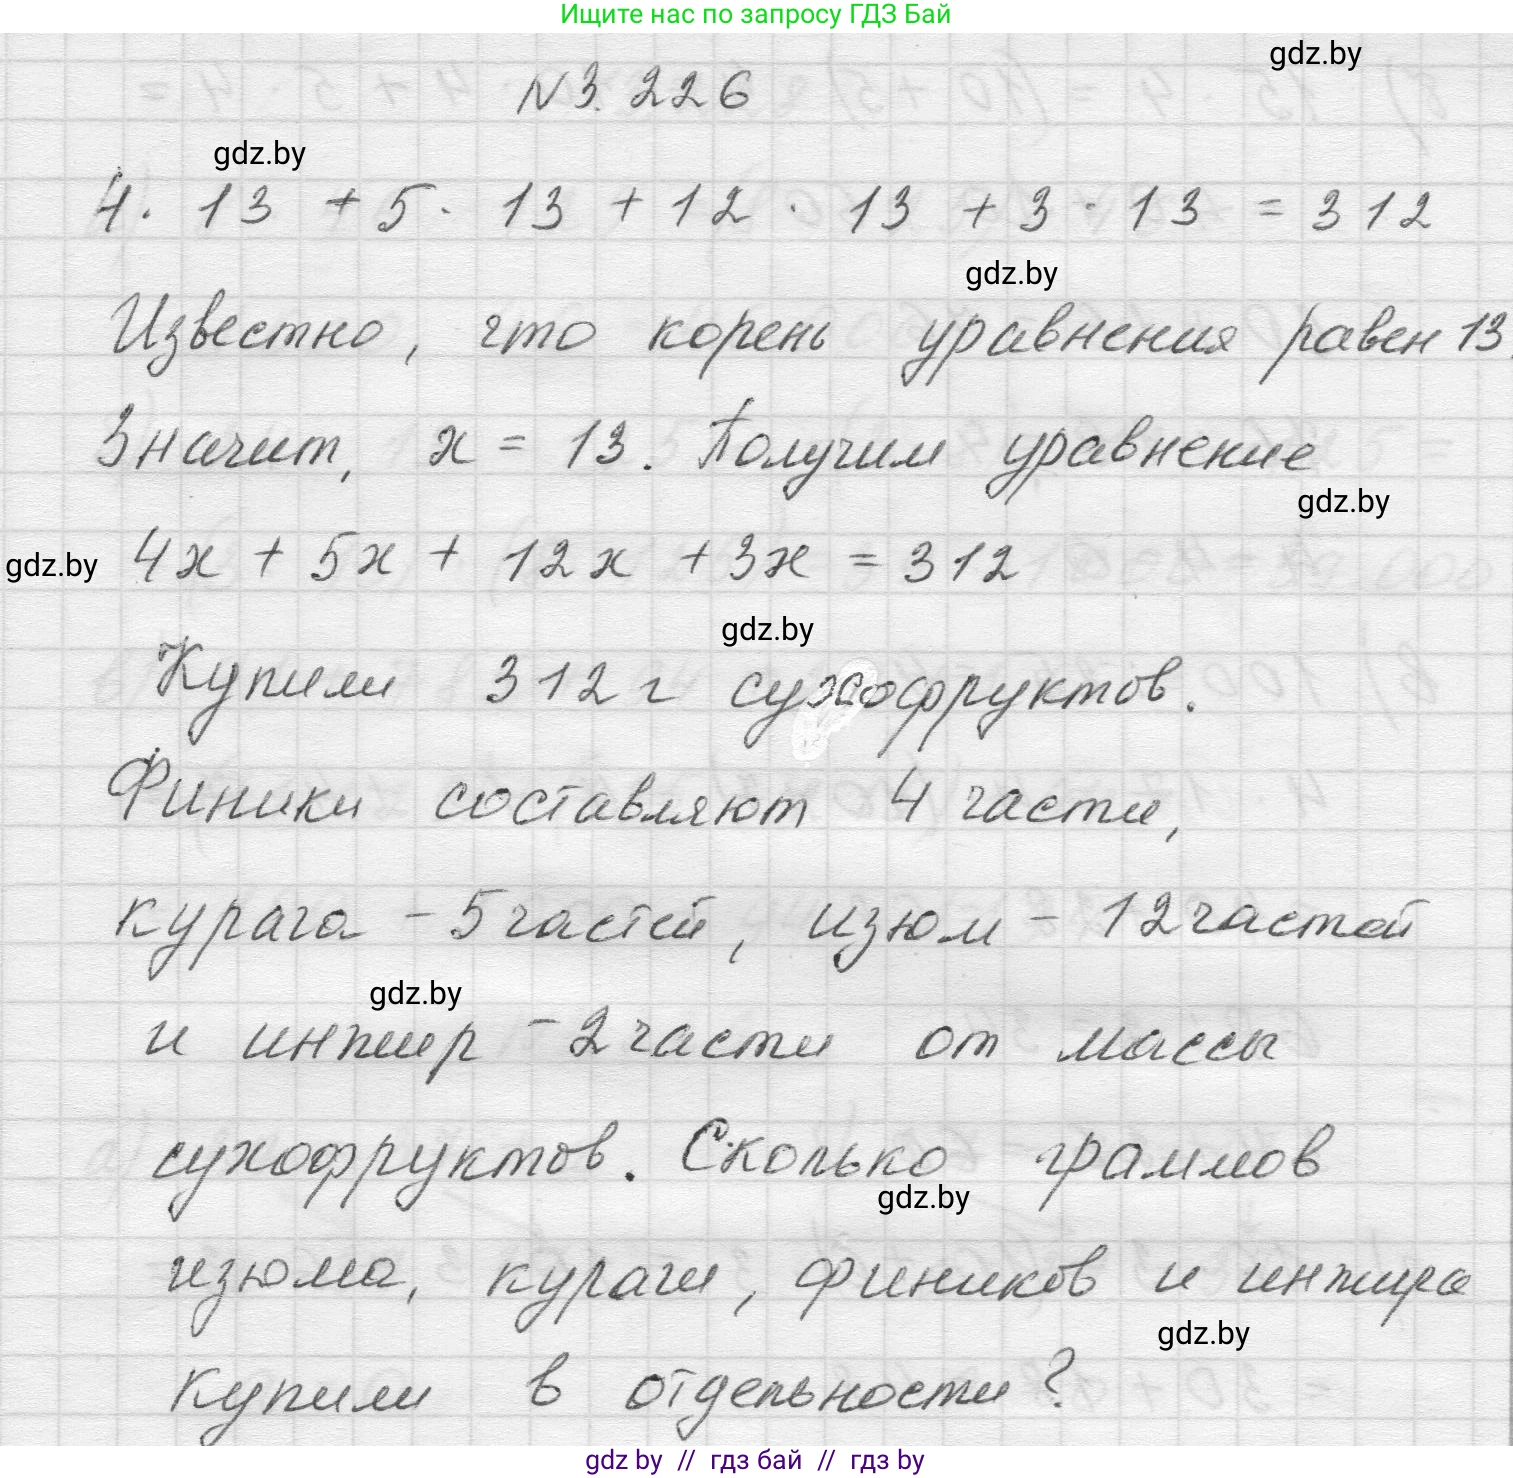 Ищите нас по запросу ГДЗ Бай
gdz.by
N 3. 226
gdz.by
4 · 13 + 5 · 13 + 12 · 13 + 3 · 13 = 312
gdz.by
Известно, что корень уравнения равен 13.
Значит, x = 13. Получим уравнение
gdz.by
gdz.by 4x + 5x + 12x + 3x = 312
gdz.by
Купили 312 г сухофруктов.
Финики составляют 4 части,
курага - 5 частей, изюм - 12 частей
gdz.by
и инжир - 2 части от массы
сухофруктов. Сколько граммов
gdz.by
изюма, кураги, фиников и инжира
gdz.by
купили в отдельности?
gdz by // гдз бай // гдз by